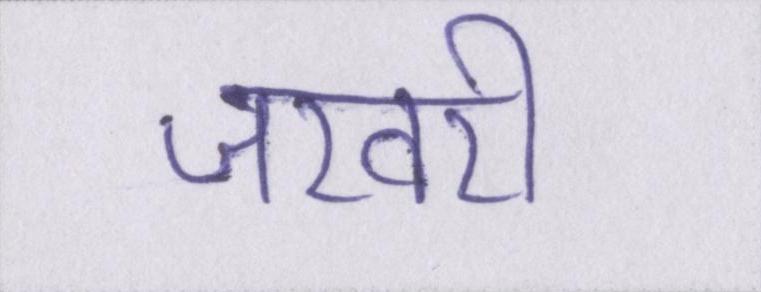 जरवरी